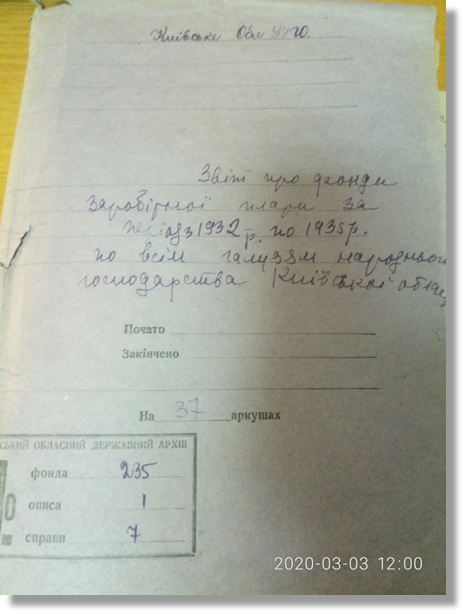 Київське Обл УНГО.
Звіт про фонди
заробітної плати за
період з 1932 р. по 1935 р.
по всім галузям народнього
господарства Київської област
Почато
Закінчено
На 37 аркушах
СЬКИЙ ОБЛАСНИЙ ДЕРЖАВНИЙ АРХІВ
фонда 235
описа 1
справи 7
2020-03-03 12:00